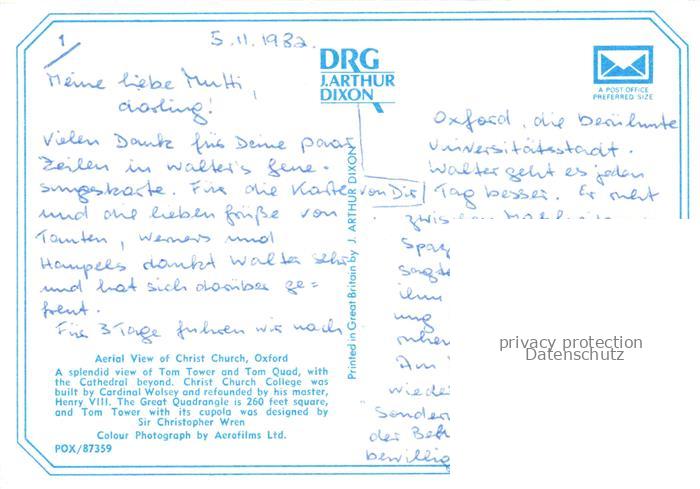 1
5.11.1982.
DRG
J.ARTHUR
DIXON
A POST OFFICE
PREFERRED SIZE
Meine liebe Mutti,
darling!
Vielen Dank für Deine paar
Zeilen in Walter's Gene-
sungskarte. Für die Karte von Dir
und die lieben Grüße von
Tanten, Werners und
Hampels dankt Walter sehr
und hat sich darüber ge=
freut.
Für 3 Tage fuhren wir nach
Printed in Great Britain by J. ARTHUR DIXON
Aerial View of Christ Church, Oxford
A splendid view of Tom Tower and Tom Quad, with
the Cathedral beyond. Christ Church College was
built by Cardinal Wolsey and refounded by his master,
Henry VIII. The Great Quadrangle is 260 feet square,
and Tom Tower with its cupola was designed by
Sir Christopher Wren
Colour Photograph by Aerofilms Ltd.
POX/87359
Oxford, die berühmte
Universitätsstadt.
Walter geht es jeden
Tag besser. Er ruht
ihm
Am
wieder
der
bewillig
privacy protection
Datenschutz